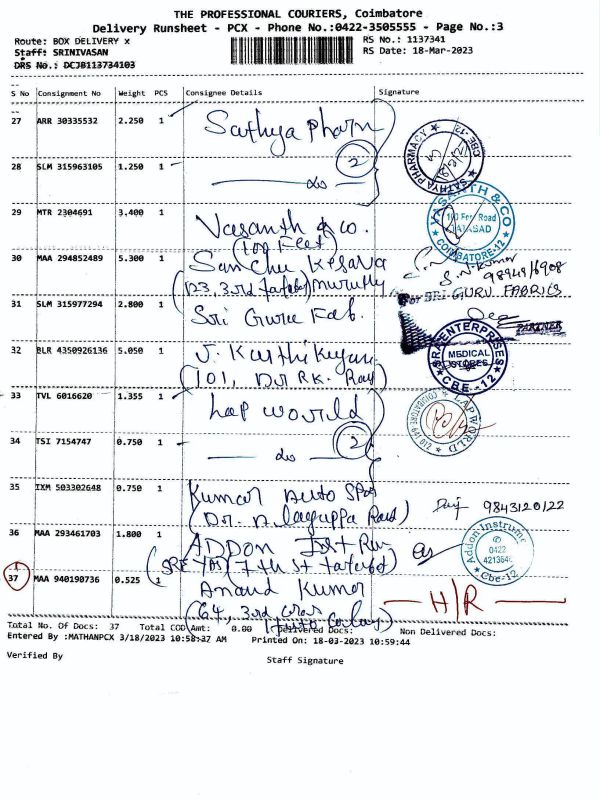 THE PROFESSIONAL COURIERS, Coimbatore
Delivery Runsheet - PCX - Phone No.:0422-3505555 - Page No.:3
Route: BOX DELIVERY x
RS No.: 1137341
Staff: SRINIVASAN
RS Date: 18-Mar-2023
DRS No.: DCJB113734103
S No Consignment No Weight PCS Consignee Details Signature
27 ARR 30335532 2.250 1 Sathya Pharm
SATHYA PHARMACY ★ CBE-12 ★
28 SLM 315963105 1.250 1 do 2
29 MTR 2304691 3.400 1 Vasanth & co.
(100 Feet)
VASANTH & CO
100 Feet Road
★ COIMBATORE-12 ★
30 MAA 294852489 5.300 1 San Chu Kesava
(123, 3rd Tatabad) murutty
S.N. Kumar
9894916908
31 SLM 315977294 2.800 1 Sri Guru Fab.
For SRI GURU FABRICS
PARTNER
32 BLR 4350926136 5.050 1 J. Karthikeyan
(101, Dr. RK. Road)
ENTERPRISES
MEDICAL
STORES
★ CBE-12 ★
33 TVL 6016620 1.355 1 Lap world
★ LAP WORLD ★ COIMBATORE-641 012
34 TSI 7154747 0.750 1 do 2
35 IXM 503302648 0.750 1 Kumar Auto Spa
(Dr. Alaguppa Road)
9843120122
36 MAA 293461703 1.800 1 ADDON Inst Ru
7th st Tatabad)
Addon Instrume
0422
★ Cbe-12 ★
37 MAA 940190736 0.525 1 Anand Kumar
(64, 3rd cross
H/R
Total No. Of Docs: 37 Total COD Amt: 0.00 Delivered Docs: Non Delivered Docs:
Entered By :MATHANPCX 3/18/2023 10:58:37 AM Printed On: 18-03-2023 10:59:44
Verified By
Staff Signature